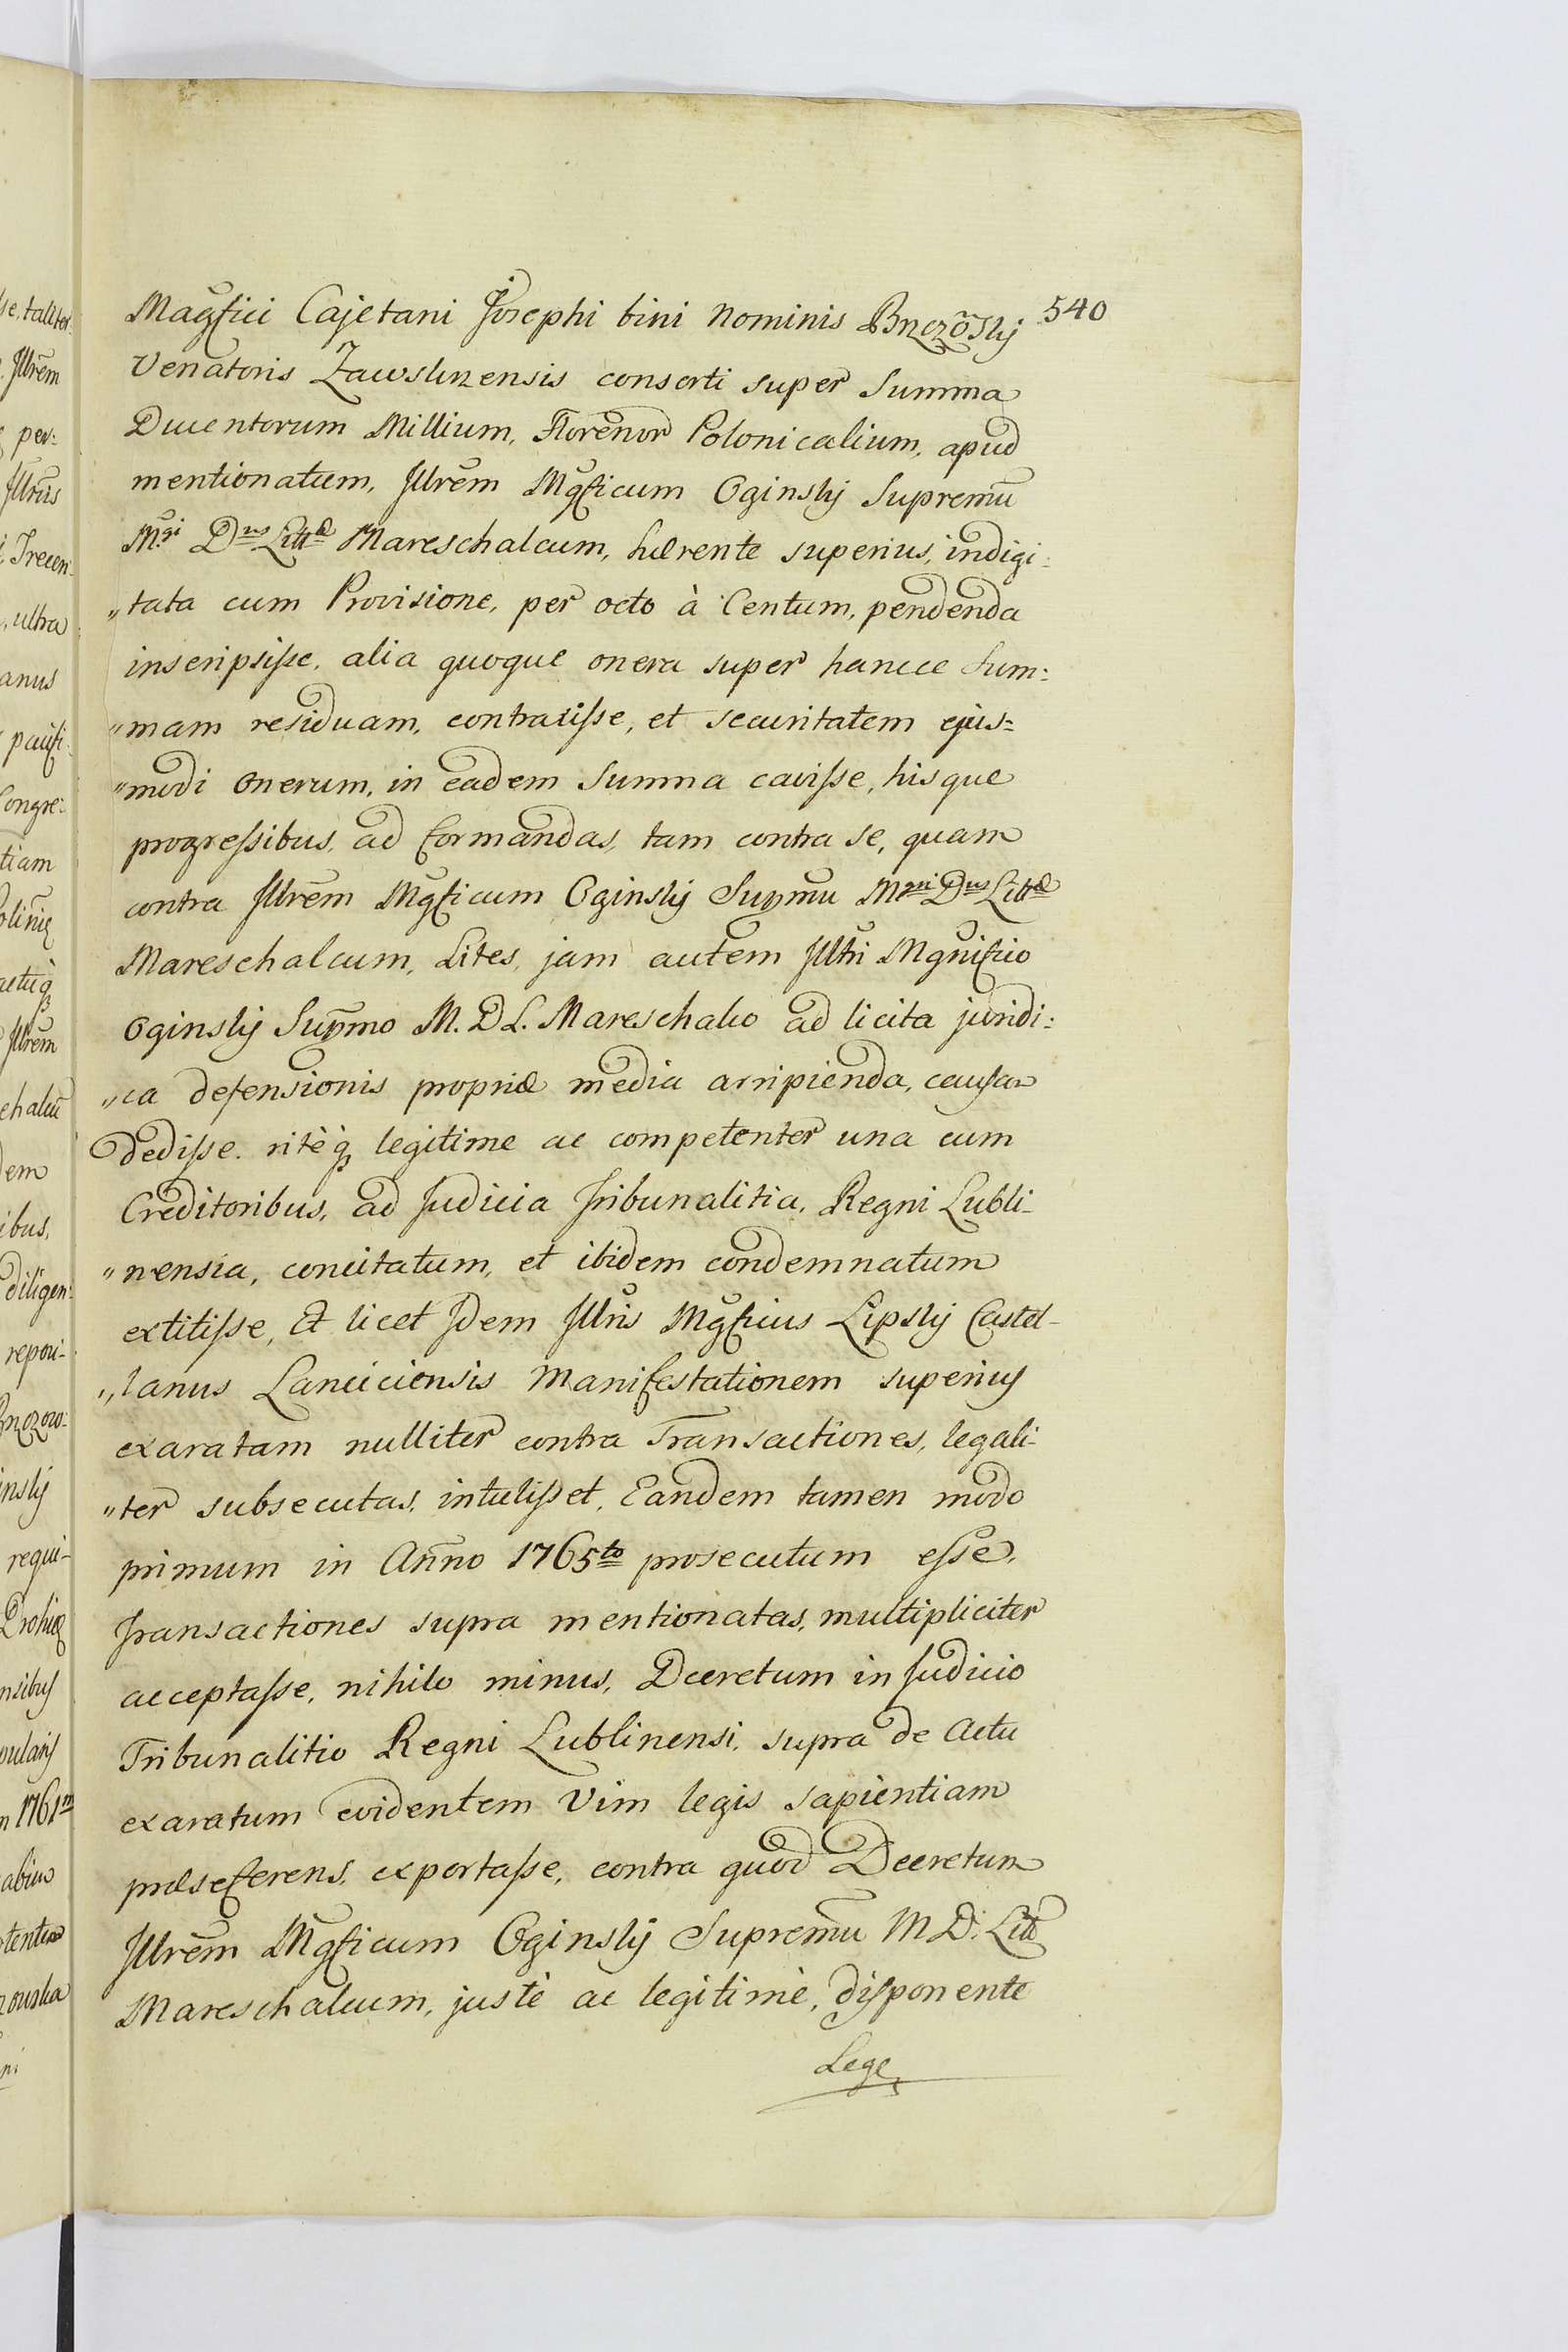 540
Mag̃fici Cajetani Josephi bini Nominis Brzozõskj
Venatoris Zawskrzensis consorti super Summa
Ducentorum Millium, Florenor̃ Polonicalium, apud
mentionatum, Jllrẽm Mg̃ficum Oginskj Supremũ
M.gi Dus Littæ Mareschalcum, hærente superius, indigi:
"tata cum Provisione, per octo à Centum, pendenda
inscripsiſse, alia quoque onera super hancce Sum:
"mam residuam, contraxiſse, et securitatem ejus=
"modi onerum, in eadem Summa caviſse, hisque
progreſsibus, ad formandas, tam contra se, quam
contra Jllrẽm Mg̃ficum Oginskj Sup̃mũ Mgni Dus Littæ
Mareschalcum, Lites, jam autem Jllrĩ Mgnĩfico
Oginskj Sup̃mo M. D L. Mareschalco ad licita juridi:
"ca defensionis propriæ media arripienda, cauſam
dediſse. ritèq̃ legitime ac competenter una cum
Creditoribus, ad Judicia Tribunalitia, Regni Lubli-
"nensia, concitatum, et ibidem condemnatum
extitiſse, Et licet Jdem Jllrĩs Mg̃ficus Lipskj Castel-
"lanus Lanciciensis Manifestationem superius
exaratam nulliter contra Transactiones, legali-
"ter subsecutas, intuliſset, Eandem tamen modo
primum in Añno 1765to prosecutum eſse,
Transactiones supra mentionatas, multipliciter
acceptaſse, nihilo minus, Decretum in Judicio
Tribunalitio Regni Lublinensi, supra de Actu
exaratum evidentem Vim legis sapientiam
præseferens, exportaſse, contra quod Decretum
Jllrẽm Mg̃ficum Oginskj Supremũ M D. Litt
Mareschalcum, justè ac legitimè, diſponente
Lege